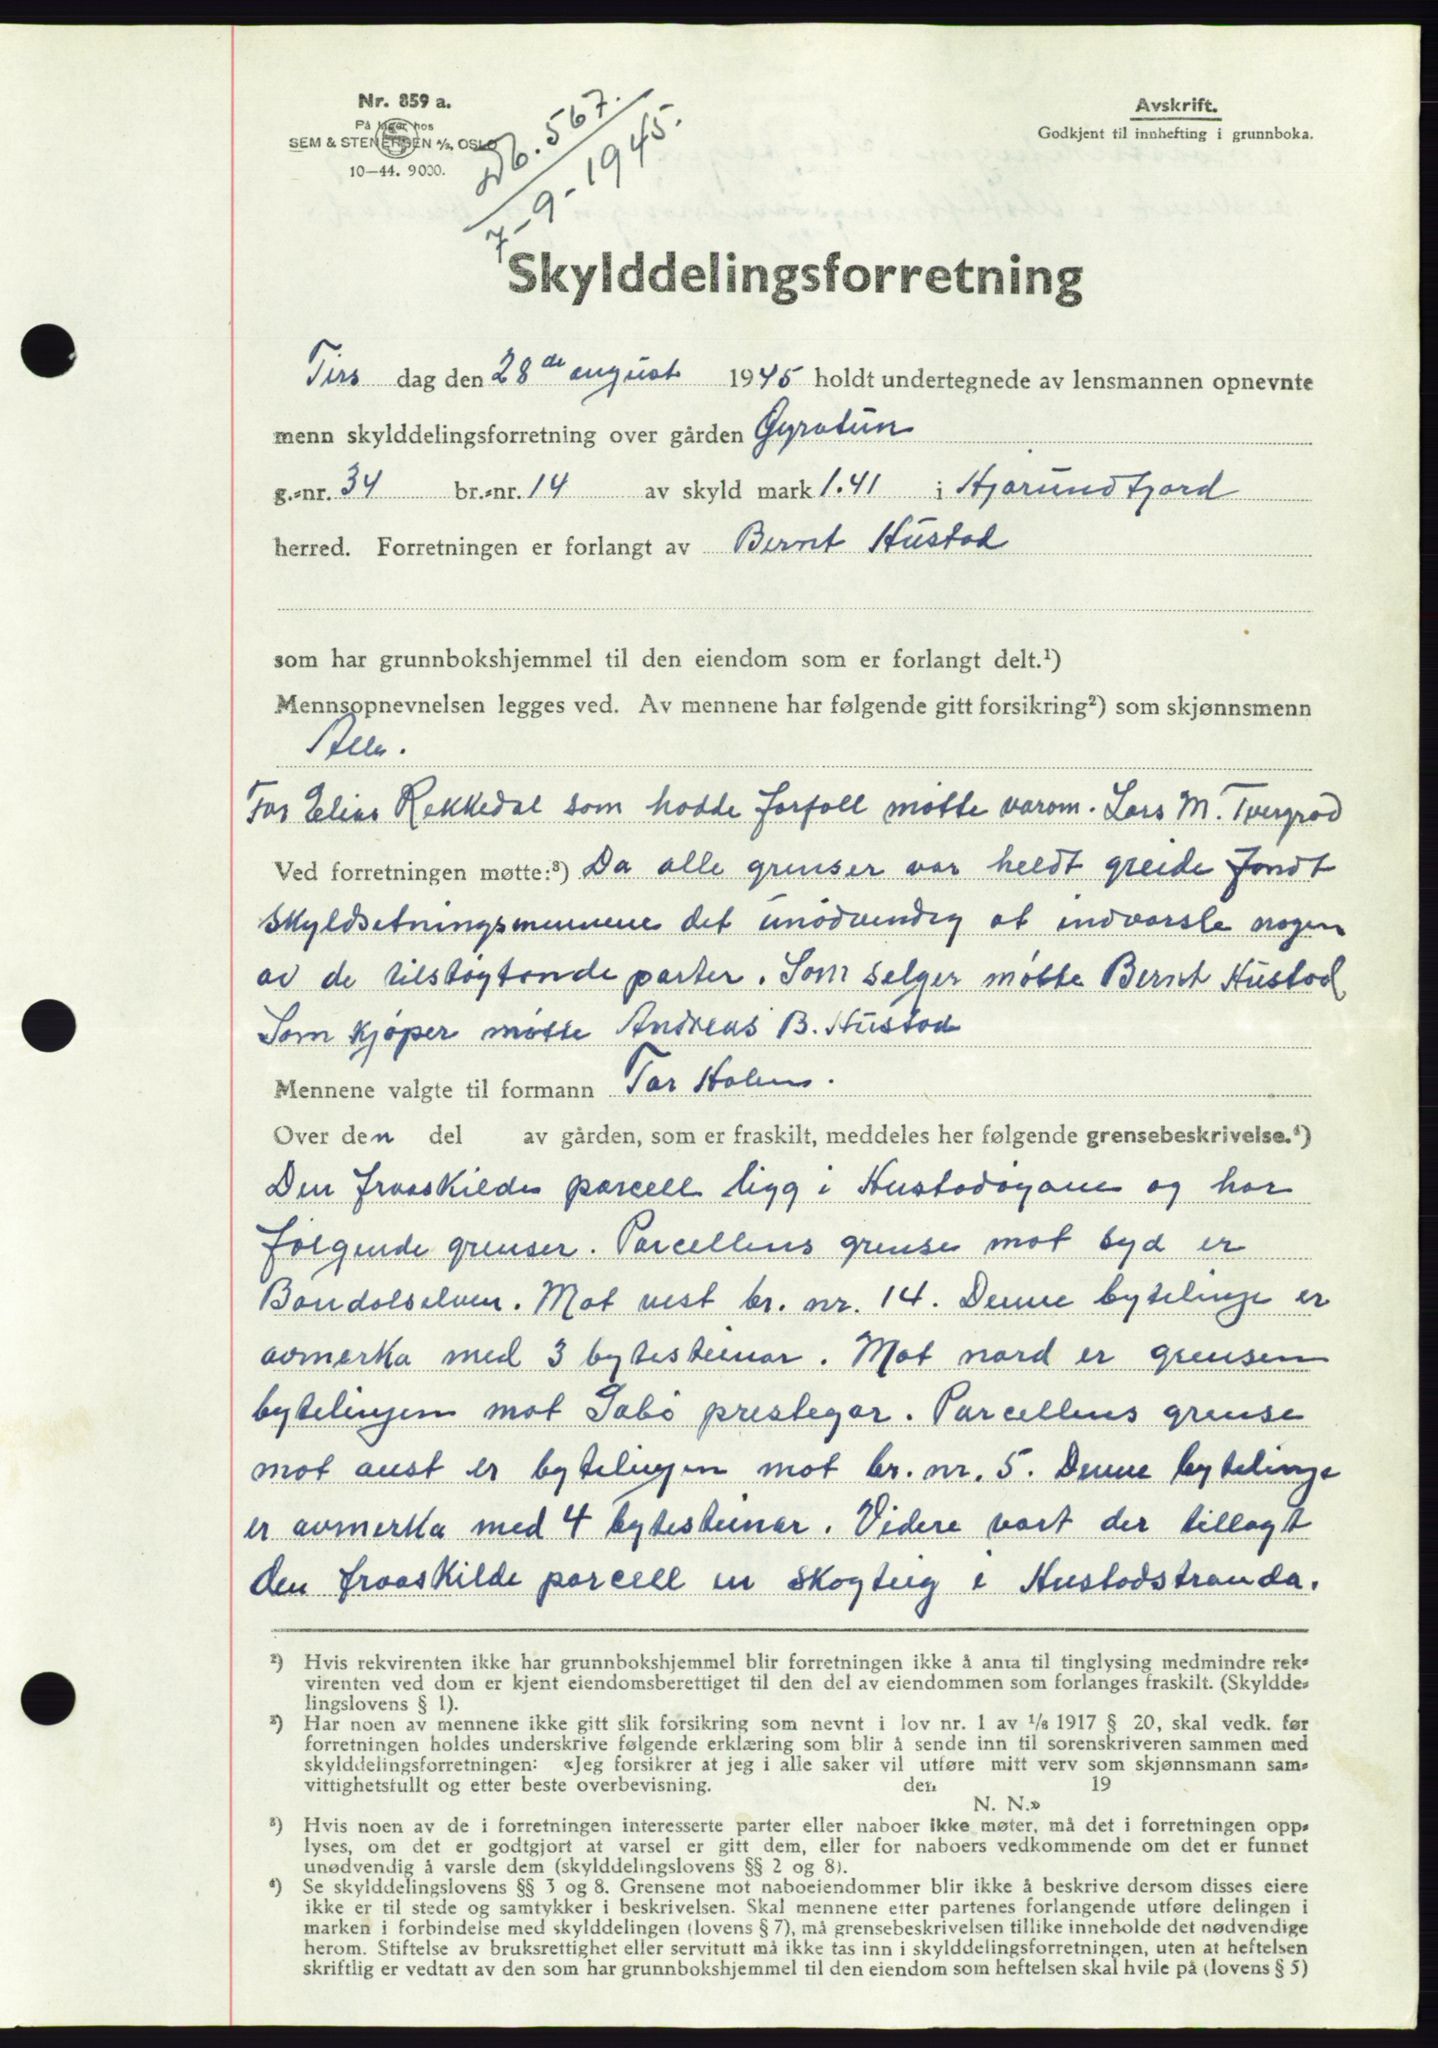 Nr. 859 a.
På lager hos
SEM & STENERSEN A/S, OSLO
10-44. 9000.
Db. 567.
7-9-1945.
Avskrift.
Godkjent til innhefting i grunnboka.
Skylddelingsforretning
Tirs dag den 28de august 1945 holdt undertegnede av lensmannen opnevnte
menn skylddelingsforretning over gården Øyratun
g.-nr. 34 br.-nr. 14 av skyld mark 1.41 i Hjørundfjord
herred. Forretningen er forlangt av Bernt Hustad
som har grunnbokshjemmel til den eiendom som er forlangt delt.¹)
Mennsopnevnelsen legges ved. Av mennene har følgende gitt forsikring²) som skjønnsmenn
Alle.
For Elias Rekkedal som hadde forfall møtte varam. Lars M. Tvergrod
Ved forretningen møtte:³) Da alle grenser var heldt greide fandt
skyldsetningsmennene det unødvendig at indvarsle nogen
av de tilstøytande parter. Som selger møtte Bernt Hustad
Som kjøper møtte Andreas B. Hustad
Mennene valgte til formann Tor Holen.
Over den del av gården, som er fraskilt, meddeles her følgende grensebeskrivelse.⁴)
Den fraaskilde parcell ligg i Hustadøyane og har
følgende grenser. Parcellens grense mot syd er
Bondalselven. Mot vest br. nr. 14. Denne bytelinje er
avmerka med 3 bytesteinar. Mot nord er grensen
bytelinjen mot Sæbø prestegar. Parcellens grense
mot aust er bytelinjen mot br. nr. 5. Denne bytelinje
er avmerka med 4 bytesteinar. Videre vart der tillagt
den fraaskilde parcell en skogteig i Hustadstranda.
²) Hvis rekvirenten ikke har grunnbokshjemmel blir forretningen ikke å anta til tinglysing medmindre rek-
virenten ved dom er kjent eiendomsberettiget til den del av eiendommen som forlanges fraskilt. (Skyldde-
lingslovens § 1).
²) Har noen av mennene ikke gitt slik forsikring som nevnt i lov nr. 1 av 1/8 1917 § 20, skal vedk. før
forretningen holdes underskrive følgende erklæring som blir å sende inn til sorenskriveren sammen med
skylddelingsforretningen: «Jeg forsikrer at jeg i alle saker vil utføre mitt verv som skjønnsmann sam-
vittighetsfullt og etter beste overbevisning. den 19
N. N.»
³) Hvis noen av de i forretningen interesserte parter eller naboer ikke møter, må det i forretningen opp-
lyses, om det er godtgjort at varsel er gitt dem, eller for naboers vedkommende om det er funnet
unødvendig å varsle dem (skylddelingslovens §§ 2 og 8).
⁴) Se skylddelingslovens §§ 3 og 8. Grensene mot naboeiendommer blir ikke å beskrive dersom disses eiere
ikke er til stede og samtykker i beskrivelsen. Skal mennene etter partenes forlangende utføre delingen i
marken i forbindelse med skylddelingen (lovens § 7), må grensebeskrivelsen tillike inneholde det nødvendige
herom. Stiftelse av bruksrettighet eller servitutt må ikke tas inn i skylddelingsforretningen, uten at heftelsen
skriftlig er vedtatt av den som har grunnbokshjemmel til den eiendom som heftelsen skal hvile på (lovens § 5)